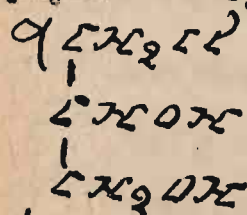 α CH₂Cl
|
CHOH
|
CH₂OH